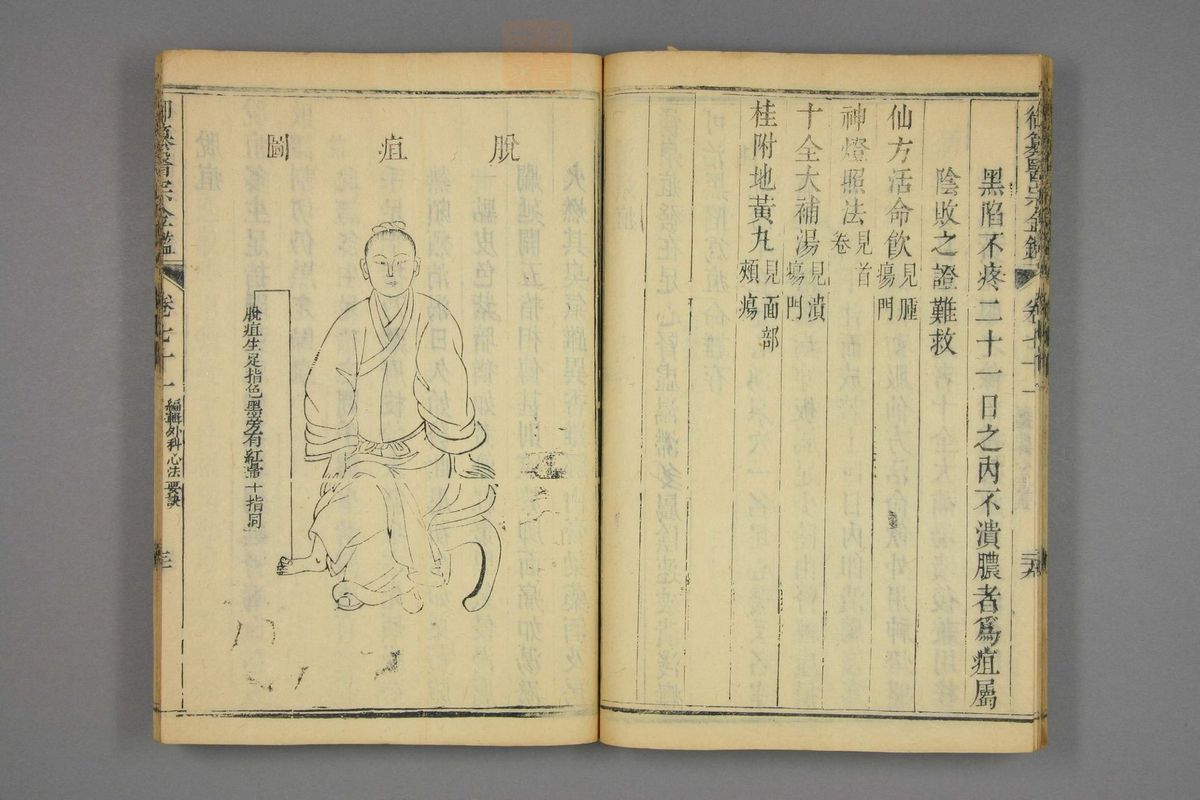 御纂醫宗金鑑
卷七十一
黑陷不疼二十一日之內不潰膿者爲疽屬
陰敗之證難救
仙方活命飮見腫瘍門
神燈照法見首卷
十全大補湯見潰瘍門
桂附地黃丸見面部頰瘍
脫疽圖
脫疽生足指色黑旁有紅暈十指同
御纂醫宗金鑑
卷七十一
編輯外科心法要訣
三